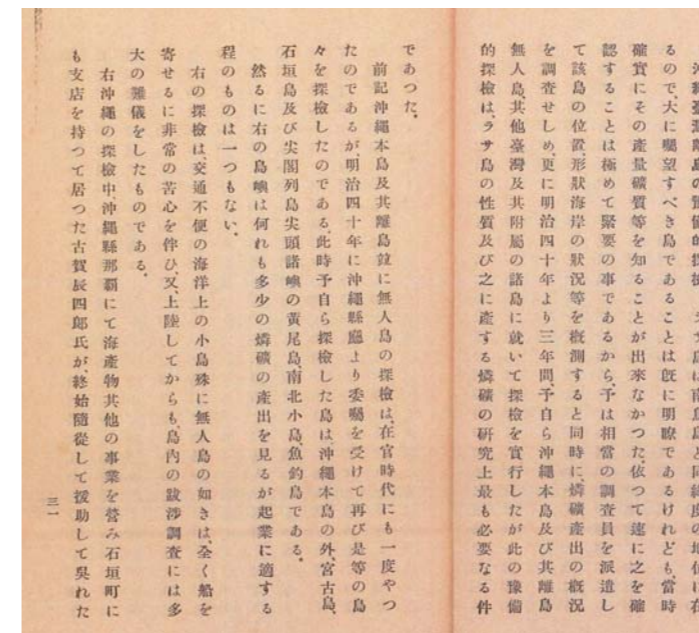 るので、大に囑望すべき島であることは旣に明瞭であるけれども、當時
確實にその產量礦質等を知ることが出來なかつた依つて速に之を確
認することは極めて緊要の事であるから、予は相當の調査員を派遣し
て該島の位置、形狀、海岸の狀況等を槪測すると同時に、燐礦產出の槪況
を調査せしめ、更に明治四十年より三年間、予自ら沖繩本島及び其離島
無人島、其他臺灣及其附屬の諸島に就いて探檢を實行したが此の豫備
的探檢は、ラサ島の性質及び之に產する燐礦の硏究上最も必要なる件
であつた。
前記沖繩本島及其離島竝に無人島の探檢は、在官時代にも一度やつ
たのであるが、明治四十年に沖繩縣廳より委囑を受けて再び是等の島
々を探檢したのである。此時予自ら探檢した島は、沖繩本島の外、宮古島、
石垣島及び尖閣列島尖頭諸嶼の黃尾島、南北小島、魚釣島である。
然るに右の島嶼は何れも多少の燐礦の產出を見るが起業に適する
程のものは一つもない。
右の探檢は、交通不便の海洋上の小島殊に無人島の如きは、全く船を
寄せるに非常の苦心を伴ひ、又、上陸してからも、島內の跋涉調査には多
大の難儀をしたものである。
右沖繩の探檢中沖繩縣那覇にて海產物其他の事業を營み石垣町に
も支店を持つて居つた古賀辰四郞氏が、終始隨從して援助して吳れた
三一